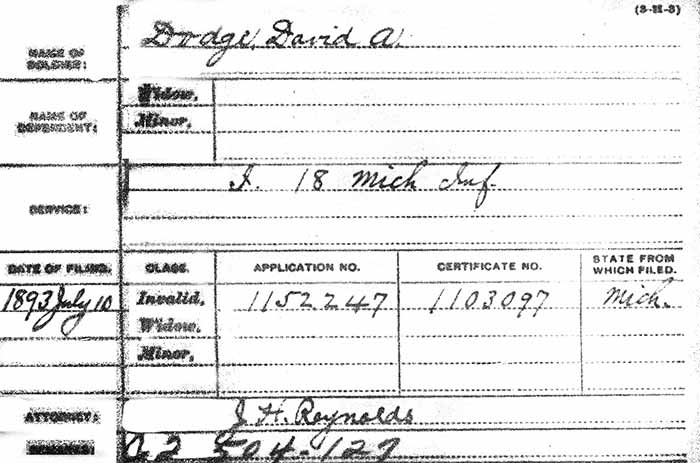 (3-H-3)
NAME OF SOLDIER:
Dodge, David A.
NAME OF DEPENDENT:
Widow,
Minor,
SERVICE:
I. 18 Mich Inf.
DATE OF FILING. CLASS. APPLICATION NO. CERTIFICATE NO. STATE FROM WHICH FILED.
1893 July 10 Invalid, 1152247 1103097 Mich.
Widow,
Minor,
ATTORNEY: J. H. Reynolds
REMARKS: C2 504-127